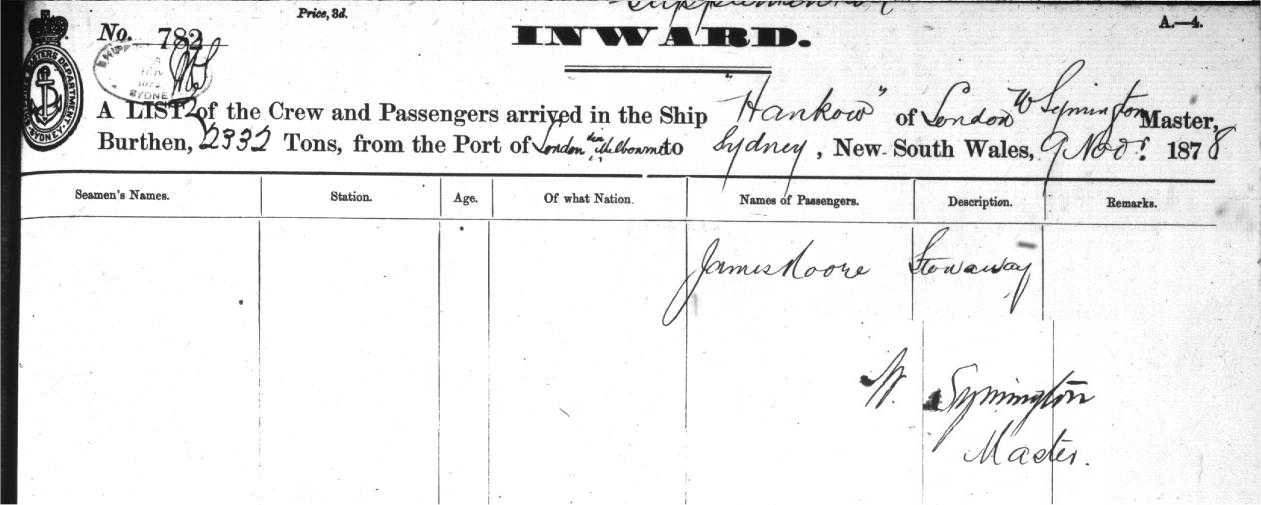 Supplementary
Price, 3d.
A.—4.
No. 782
INWARD.
A LIST of the Crew and Passengers arrived in the Ship "Hankow" of London W Symington Master,
Burthen, 2332 Tons, from the Port of London via Melbourne to Sydney, New South Wales, 9 Novr. 1878
Seamen's Names. Station. Age. Of what Nation. Names of Passengers. Description. Remarks.
James Moore Stowaway
W. Symington
Master.